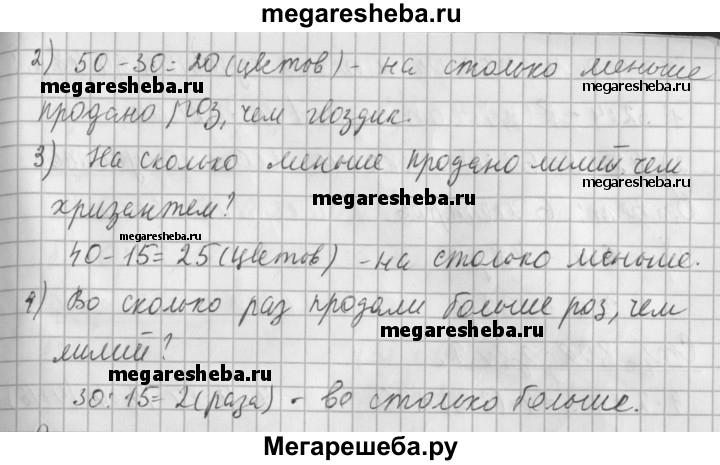 megaresheba.ru
2) 50 - 30 = 20 (цветов) - на столько меньше
megaresheba.ru
megaresheba.ru
продано роз, чем гвоздик.
3) На сколько меньше продано лилий, чем
megaresheba.ru
megaresheba.ru
хризантем?
megaresheba.ru
40 - 15 = 25 (цветов) - на столько меньше.
4) Во сколько раз продали больше роз, чем
megaresheba.ru
лилий?
megaresheba.ru
30 : 15 = 2 (раза) - во столько больше.
Мегарешеба.ру